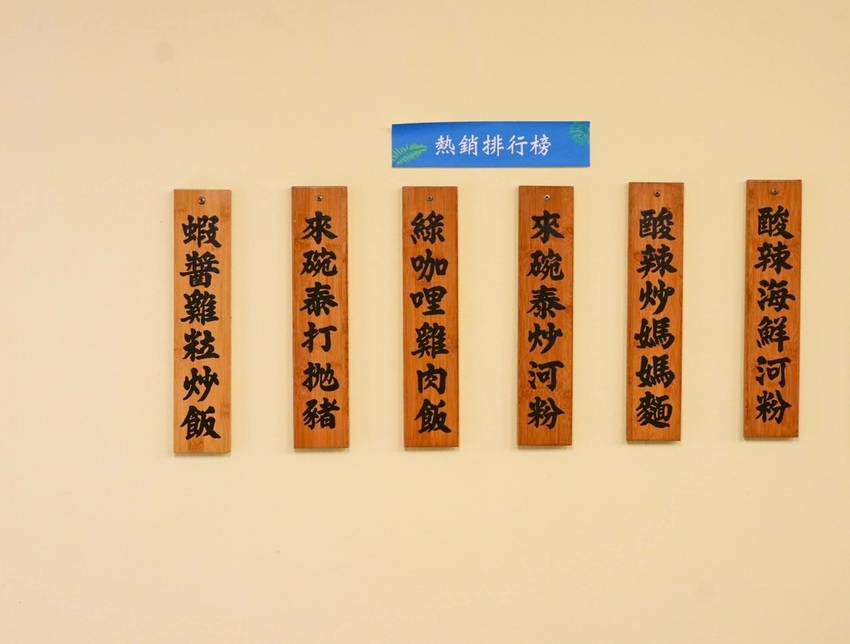 熱銷排行榜
蝦醬雞粒炒飯
來碗泰打拋豬
綠咖哩雞肉飯
來碗泰炒河粉
酸辣炒媽媽麵
酸辣海鮮河粉